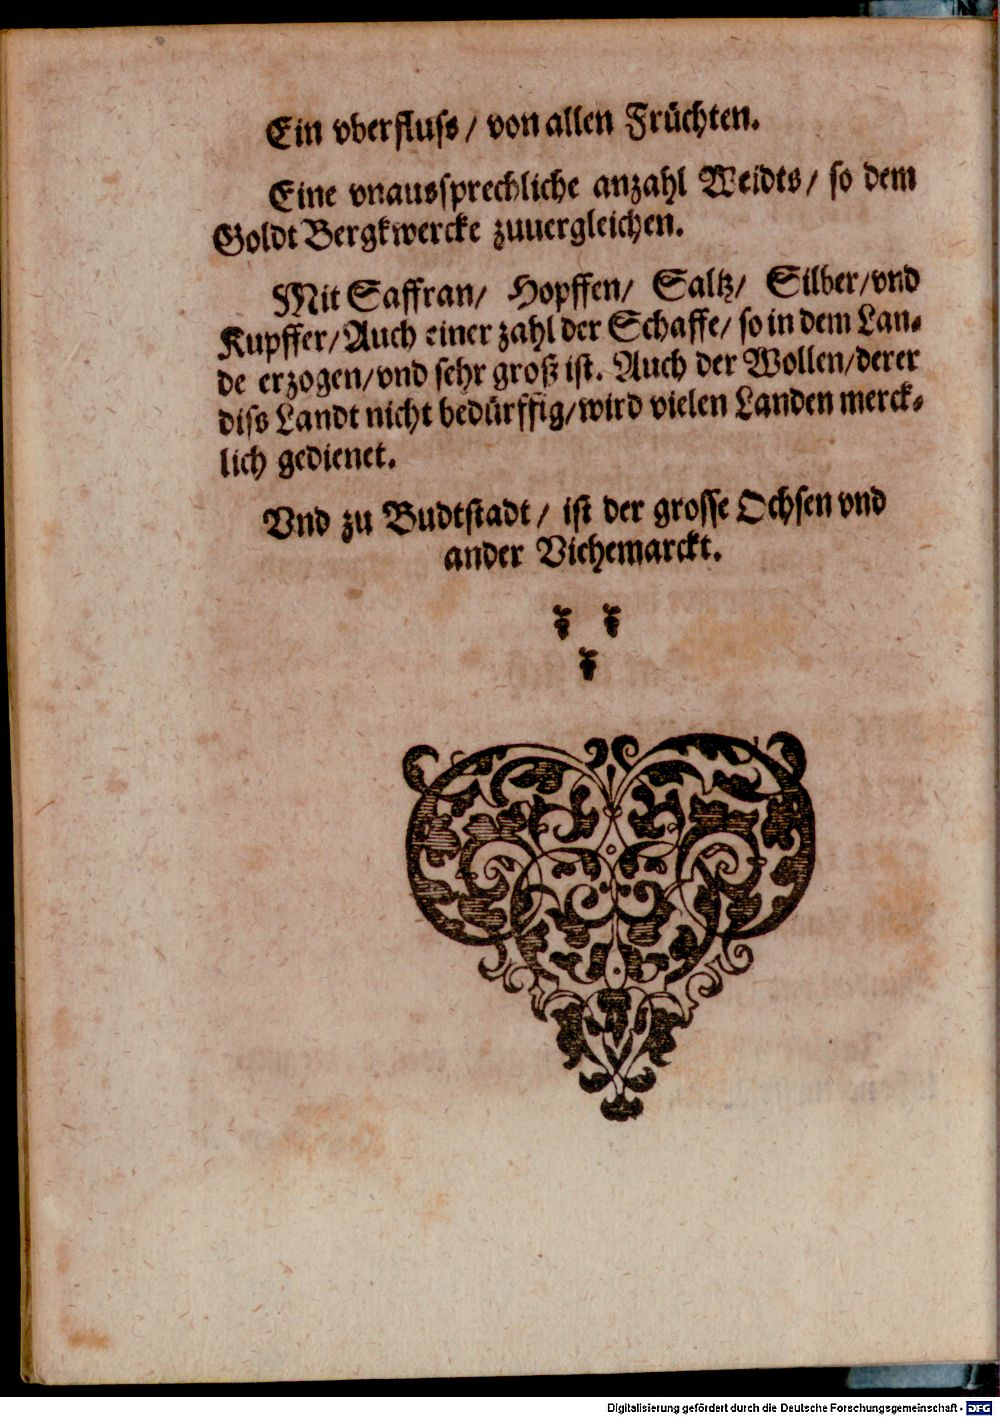 Ein vberfluss / von allen Früchten.
Eine vnaussprechliche anzahl Weidts / so dem
Goldt Bergkwercke zuuergleichen.
Mit Saffran / Hopffen / Saltz / Silber / vnd
Kupffer / Auch einer zahl der Schaffe / so in dem Lan-
de erzogen / vnd sehr groß ist. Auch der Wollen / derer
diss Landt nicht bedürffig / wird vielen Landen merck-
lich gedienet.
Vnd zu Budtstadt / ist der grosse Ochsen vnd
ander Viehemarckt.
Digitalisierung gefördert durch die Deutsche Forschungsgemeinschaft - DFG